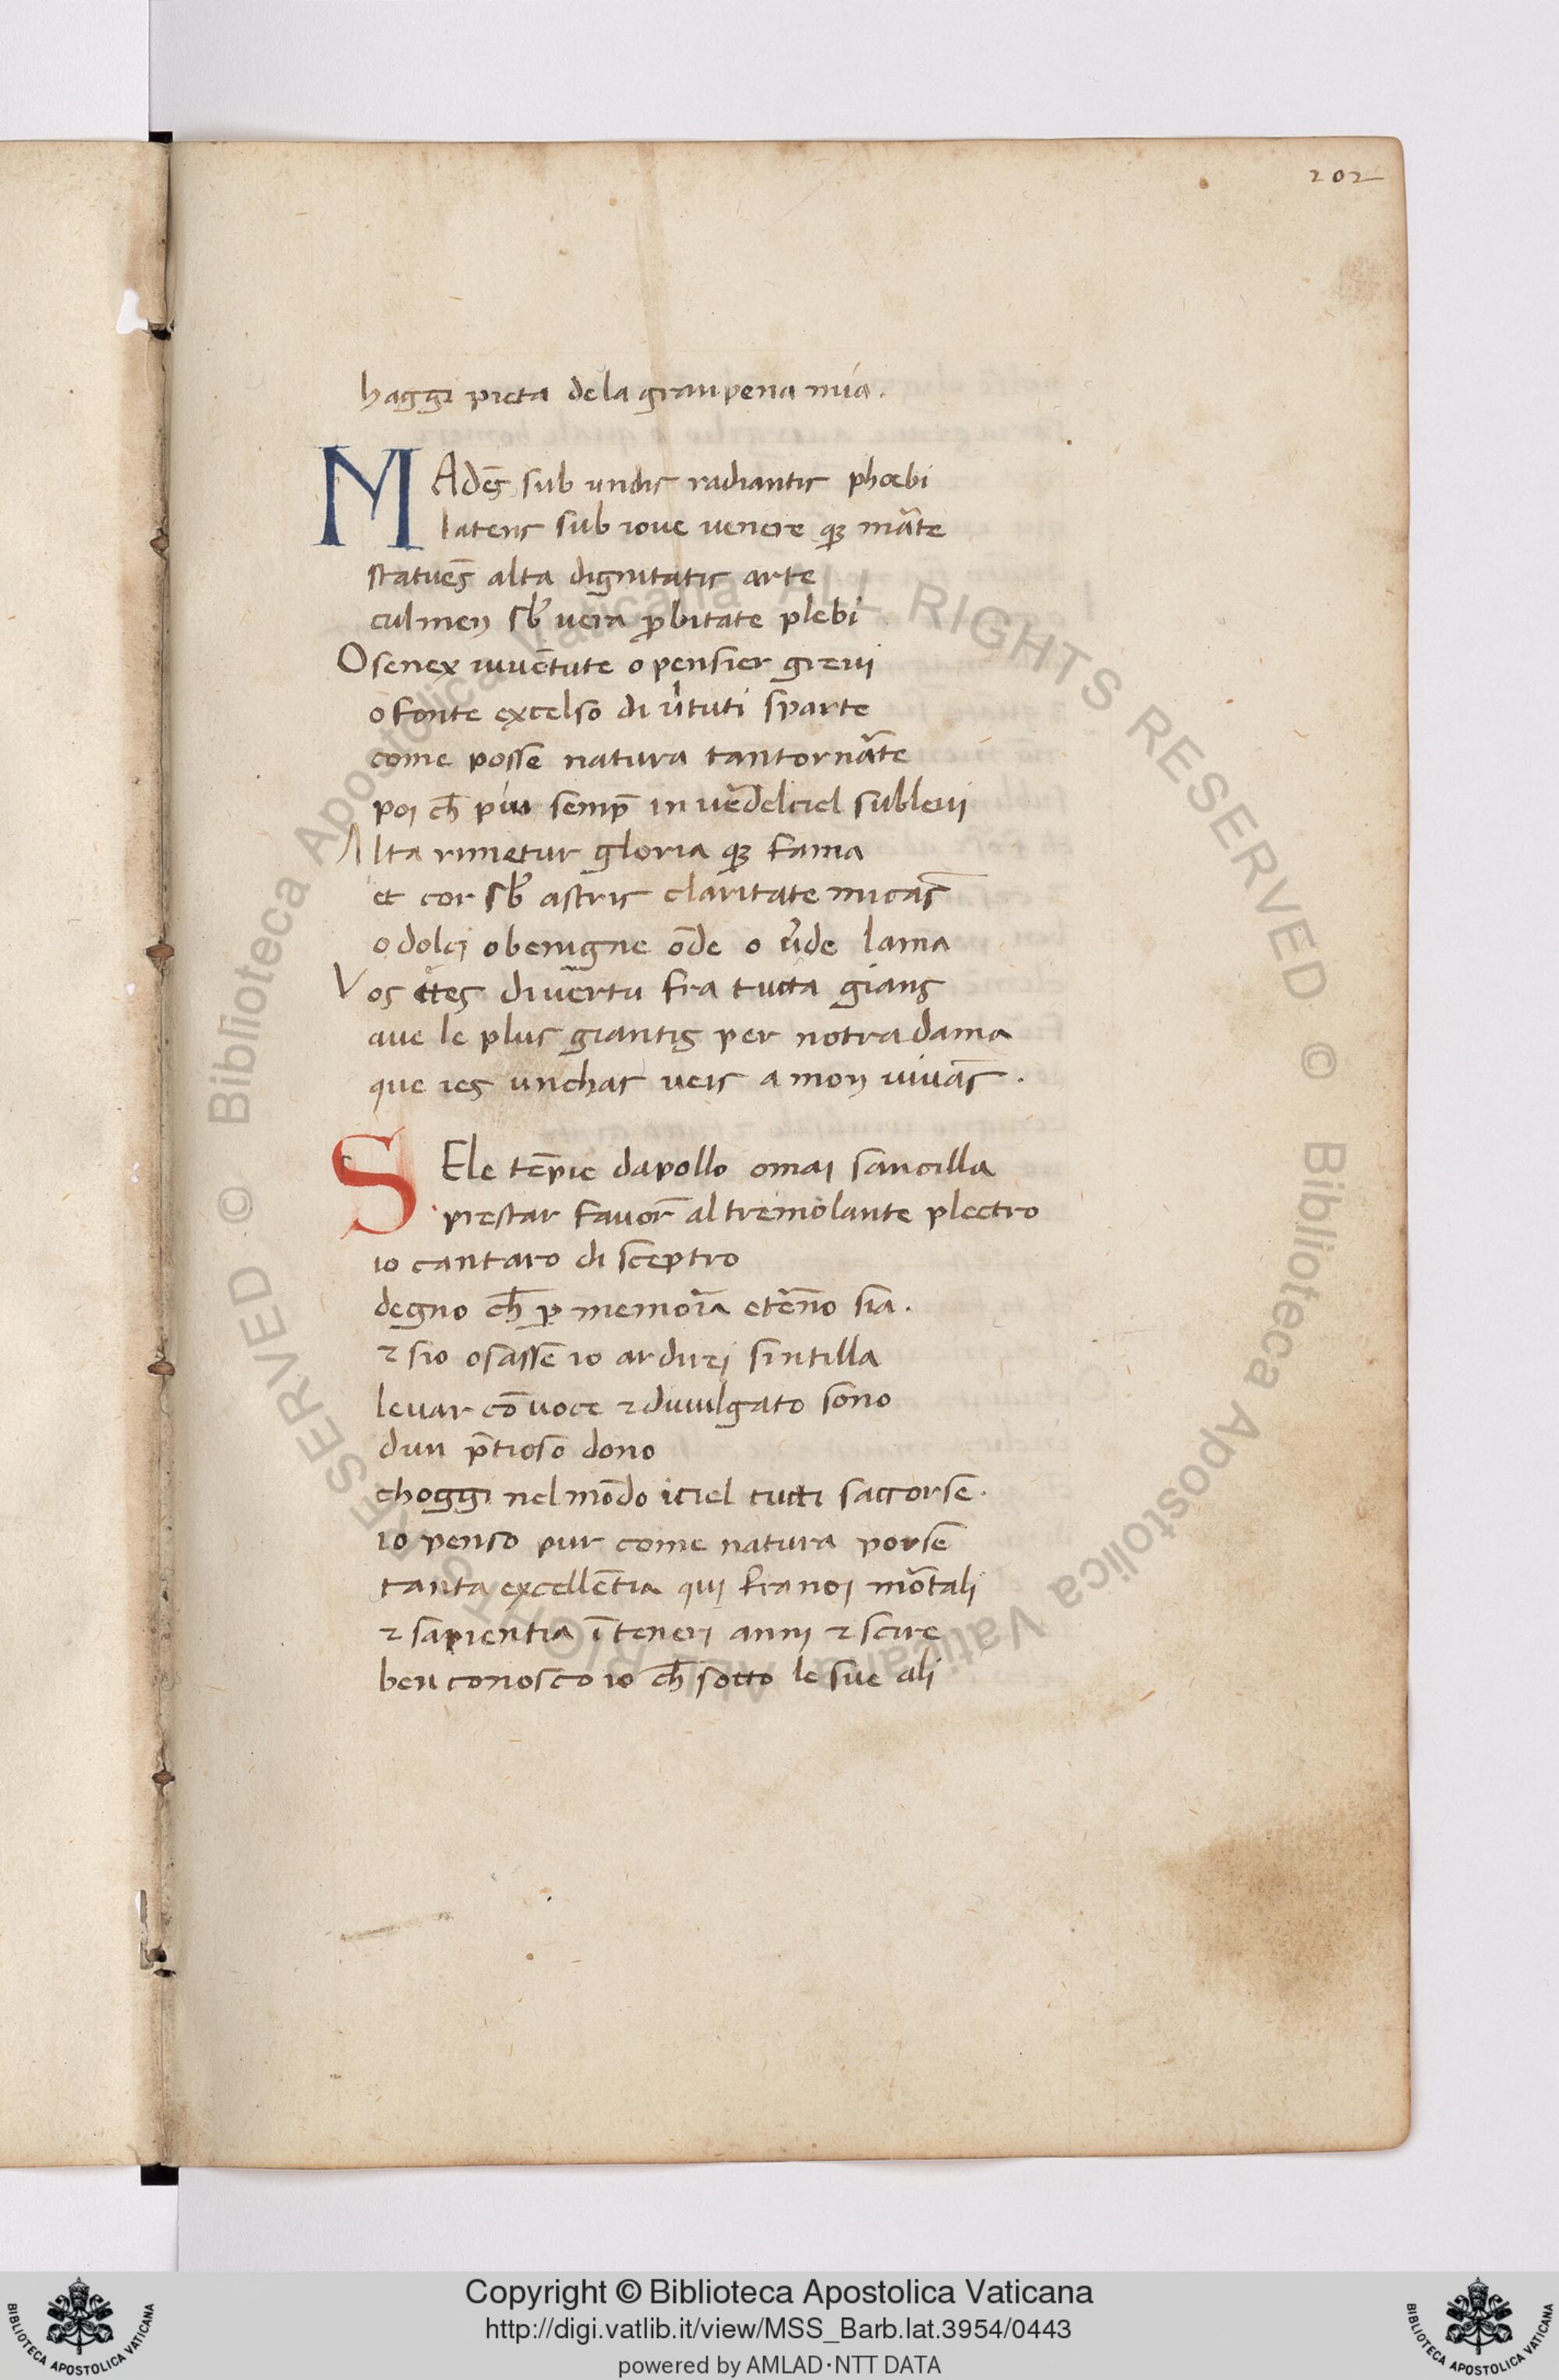 202
haggi pieta de la gran pena mia.
MAdēs sub undis radiantis phoebi
latens sub ioue venere qꝫ māte
statuēs alta dignitatis arte
culmen sƀ uera ꝓbitate plebi
O senex iuuētute o pensier greui
o fonte excelso di v̄tuti sparte
come posse natura tantornāte
poi ch̄ piu semp̄ in uēdelciel subleui
Alta rimetur gloria qꝫ fama
et cor sƀ astris claritate micās
o dolci o benigne ōde o ūde lama
Vos ettes di uertu fra tutta gians
aue le plus giantis per notra dama
que ies unchas ueis a mon uiuās.
SEle tēpie dapollo omai sancilla
prestar fauor̄ al tremolante plectro
io cantaro di sceptro
degno ch̄ ꝑ memoria etēno sia.
⁊ sio osasse io arduri sintilla
leuar cō uoce ⁊ diuulgato sono
dun p̄tioso dono
choggi nel mōdo iciel tutti saccorse.
io penso pur come natura porse
tanta excellētia qui fra noi mōtali
⁊ sapientia ī teneri anni ⁊ scire
ben conosco io ch̄ sotto le sue ali
Copyright © Biblioteca Apostolica Vaticana
http://digi.vatlib.it/view/MSS_Barb.lat.3954/0443
powered by AMLAD·NTT DATA
BIBLIOTECA APOSTOLICA VATICANA
BIBLIOTECA APOSTOLICA VATICANA
© Biblioteca Apostolica Vaticana ALL RIGHTS RESERVED
© Biblioteca Apostolica Vaticana ALL RIGHTS RESERVED